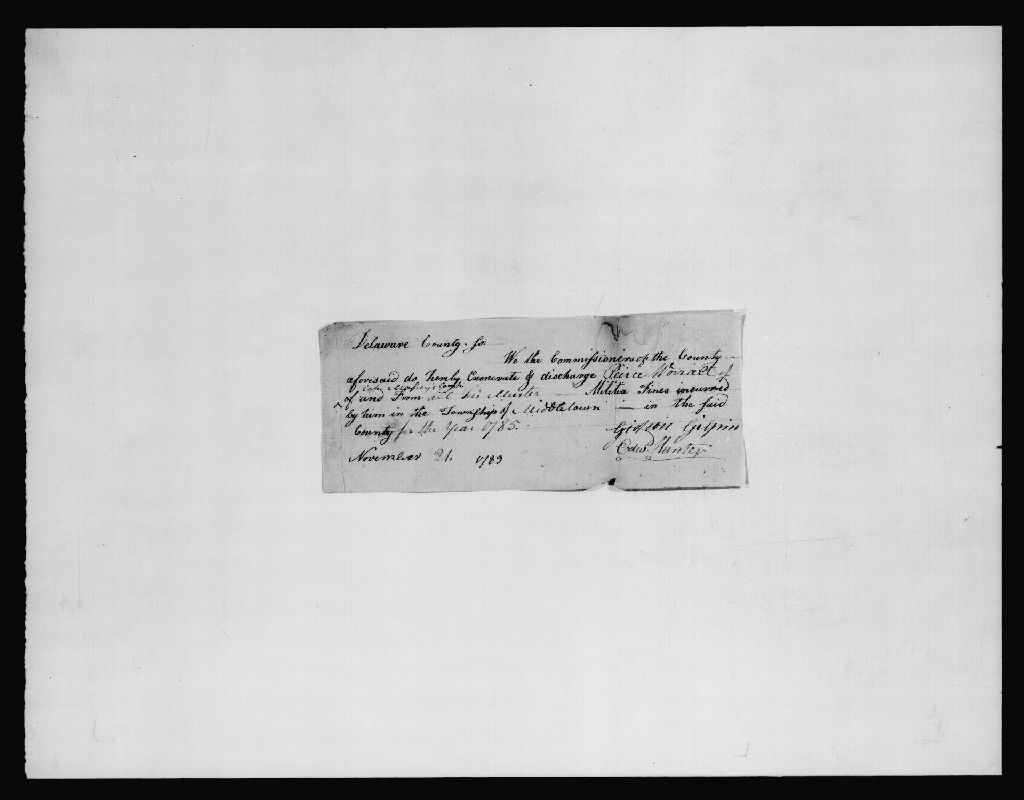 Delaware County. ss.
We the Commissioners of the County
aforesaid do hereby Exonerate & discharge Peirce Worralt of
of and From all his Muster — Militia Fines incurred
by him in the Township of Middletown — in the said
County for the Year 1785.
Gideon Gilpin
Edwd. Hunter
November 21. 1789